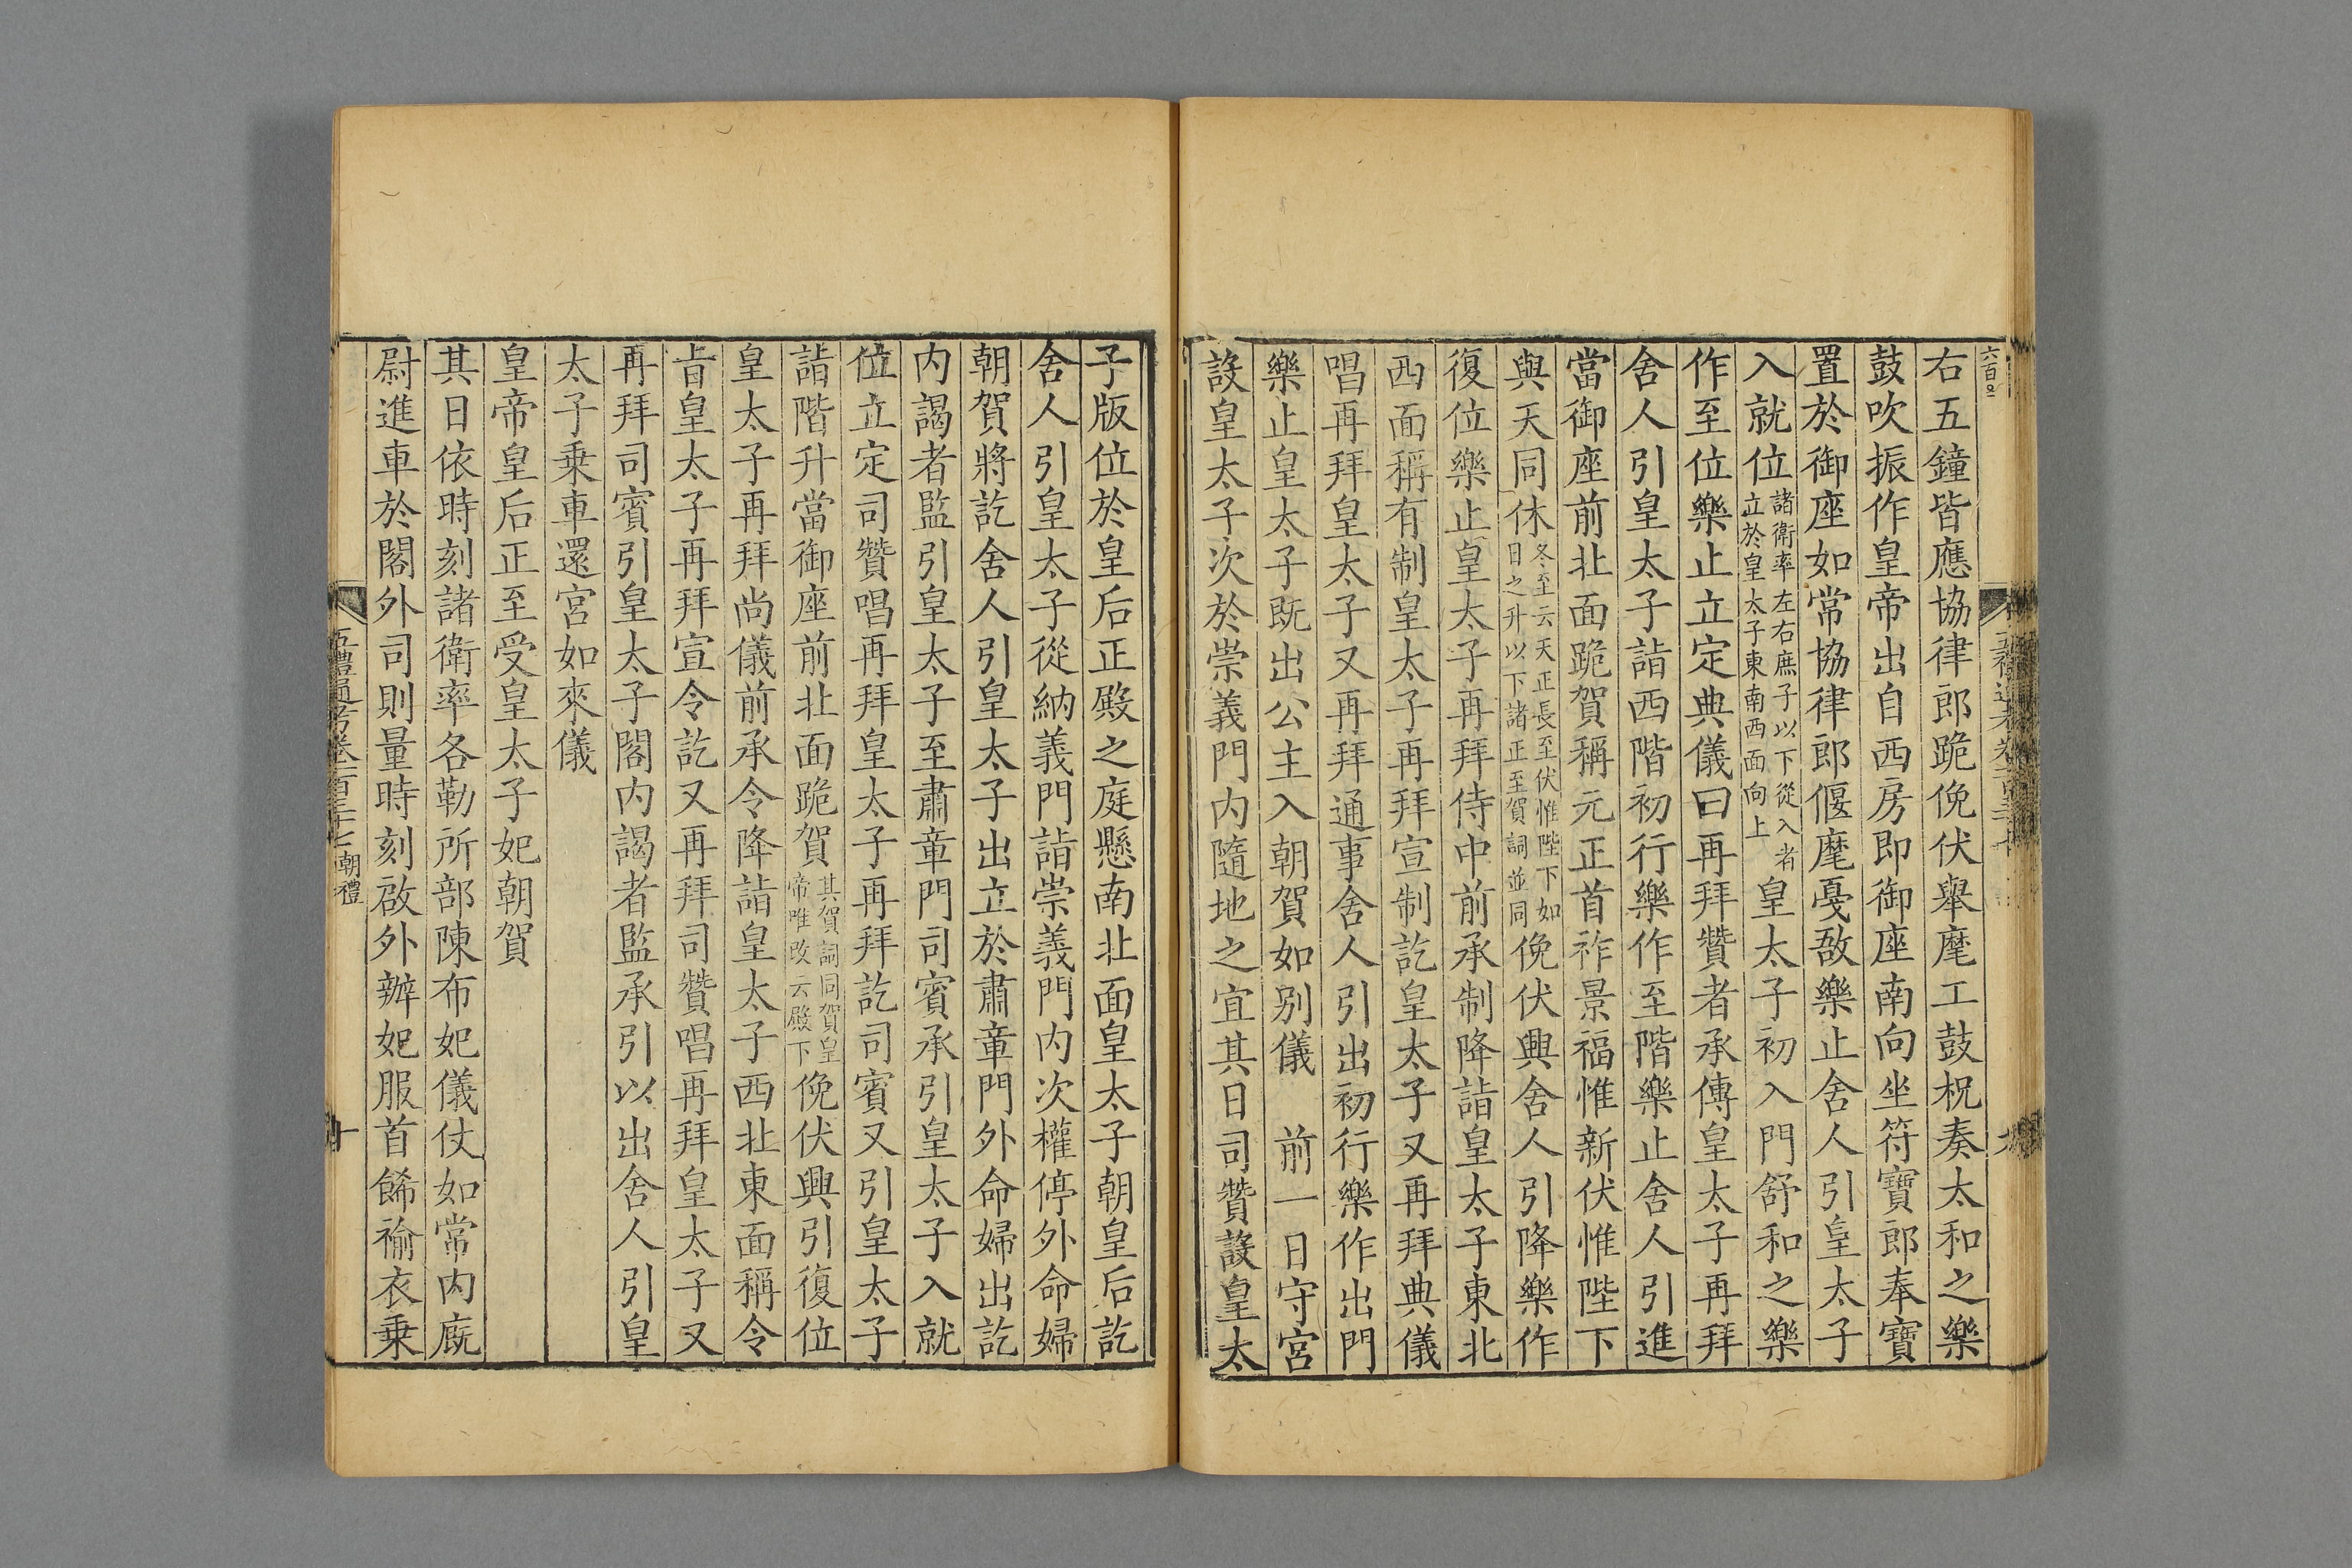 右五鐘皆應協律郎跪俛伏舉麾工鼓柷奏太和之樂
鼓吹振作皇帝出自西房即御座南向坐符寶郎奉寶
置於御座如常協律郎偃麾戞敔樂止舍人引皇太子
入就位諸衛率左右庶子以下從入者立於皇太子東南西面向上皇太子初入門舒和之樂
作至位樂止立定典儀曰再拜贊者承傳皇太子再拜
舍人引皇太子詣西階初行樂作至階樂止舍人引進
當御座前北面跪賀稱元正首祚景福惟新伏惟陛下
與天同休冬至云天正長至伏惟陛下如日之升以下諸正至賀詞並同俛伏興舍人引降樂作
復位樂止皇太子再拜侍中前承制降詣皇太子東北
西面稱有制皇太子再拜宣制訖皇太子又再拜典儀
唱再拜皇太子又再拜通事舍人引出初行樂作出門
樂止皇太子既出公主入朝賀如别儀　前一日守宮
設皇太子次於崇義門内隨地之宜其日司贊設皇太
子版位於皇后正殿之庭懸南北面皇太子朝皇后訖
舍人引皇太子從納義門詣崇義門内次權停外命婦
朝賀將訖舍人引皇太子出立於肅章門外命婦出訖
内謁者監引皇太子至肅章門司賓承引皇太子入就
位立定司贊唱再拜皇太子再拜訖司賓又引皇太子
詣階升當御座前北面跪賀其賀詞同賀皇帝唯改云殿下俛伏興引復位
皇太子再拜尚儀前承令降詣皇太子西北東面稱令
旨皇太子再拜宣令訖又再拜司贊唱再拜皇太子又
再拜司賓引皇太子閤内謁者監承引以出舍人引皇
太子乗車還宮如來儀
皇帝皇后正至受皇太子妃朝賀
其日依時刻諸衛率各勒所部陳布妃儀仗如常内廐
尉進車於閤外司則量時刻啟外辦妃服首飾褕衣乗
五禮通考卷一百三十七 朝禮
十